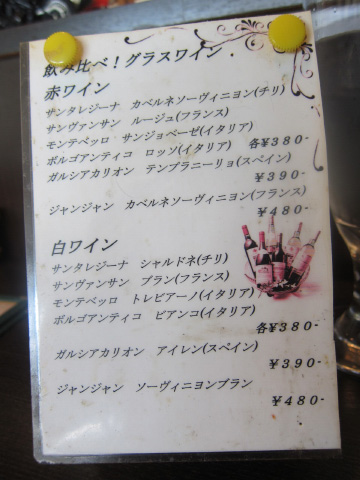 飲み比べ！グラスワイン
赤ワイン
サンタレジーナ カベルネソーヴィニヨン(チリ)
サンヴァンサン ルージュ(フランス)
モンテベッロ サンジョベーゼ(イタリア)
ボルゴアンティコ ロッソ(イタリア) 各¥380-
ガルシアカリオン テンプラニーリョ(スペイン)
¥390-
ジャンジャン カベルネソーヴィニヨン(フランス)
¥480-
白ワイン
サンタレジーナ シャルドネ(チリ)
サンヴァンサン ブラン(フランス)
モンテベッロ トレビアーノ(イタリア)
ボルゴアンティコ ビアンコ(イタリア)
各¥380-
ガルシアカリオン アイレン(スペイン)
¥390-
ジャンジャン ソーヴィニヨンブラン
¥480-